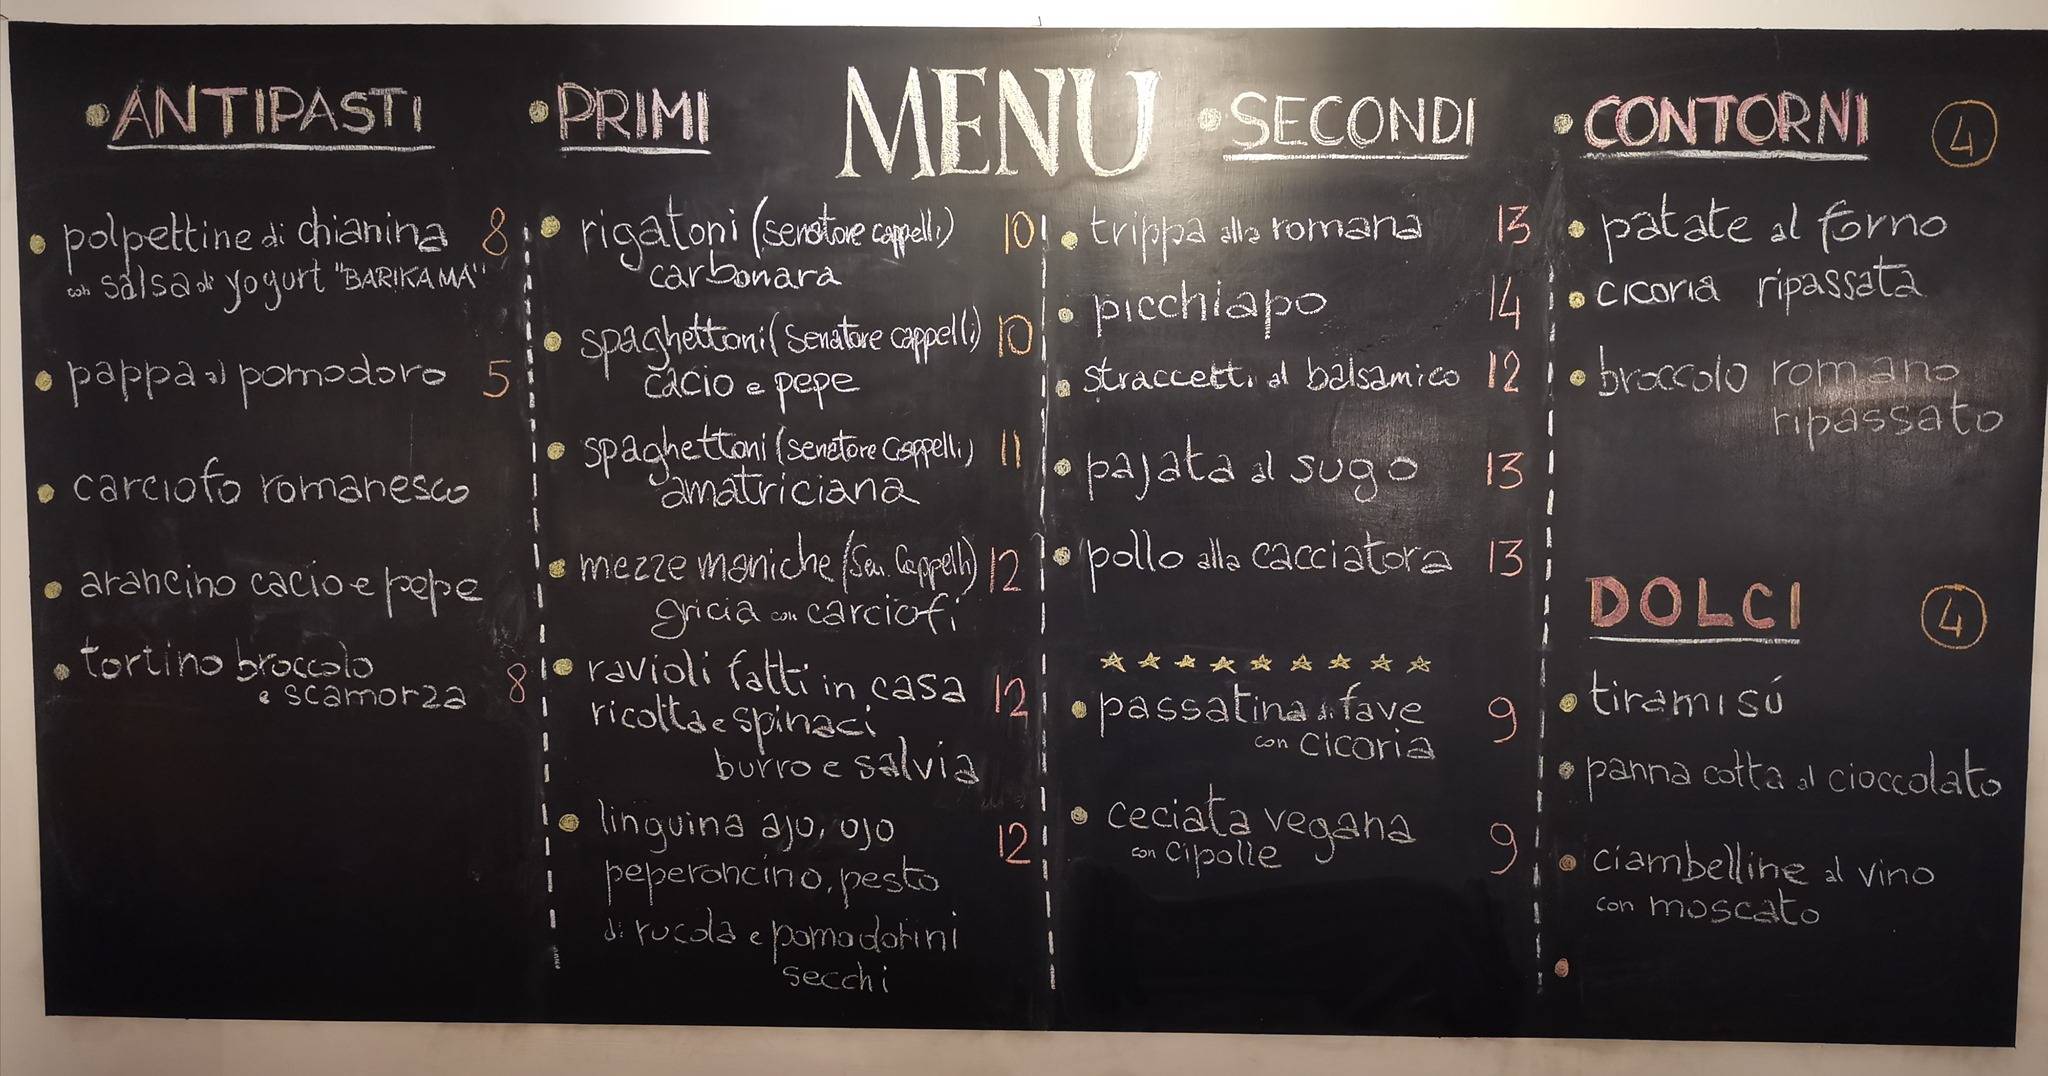 MENU
ANTIPASTI
polpettine di chianina 8
con salsa di yogurt "BARIKAMA"
pappa al pomodoro 5
carciofo romanesco
arancino cacio e pepe
tortino broccolo
e scamorza 8
PRIMI
rigatoni (senatore cappelli) 10
carbonara
spaghettoni (senatore cappelli) 10
cacio e pepe
spaghettoni (senatore Cappelli) 11
amatriciana
mezze maniche (Sen. Cappelli) 12
gricia con carciofi
ravioli fatti in casa 12
ricotta e spinaci
burro e salvia
linguina ajo, ojo 12
peperoncino, pesto
di rucola e pomodorini
secchi
SECONDI
trippa alla romana 13
picchiapo 14
straccetti al balsamico 12
pajata al sugo 13
pollo alla cacciatora 13
passatina di fave 9
con cicoria
ceciata vegana 9
con cipolle
CONTORNI 4
patate al forno
cicoria ripassata
broccolo romano
ripassato
DOLCI 4
tiramisú
panna cotta al cioccolato
ciambelline al vino
con moscato